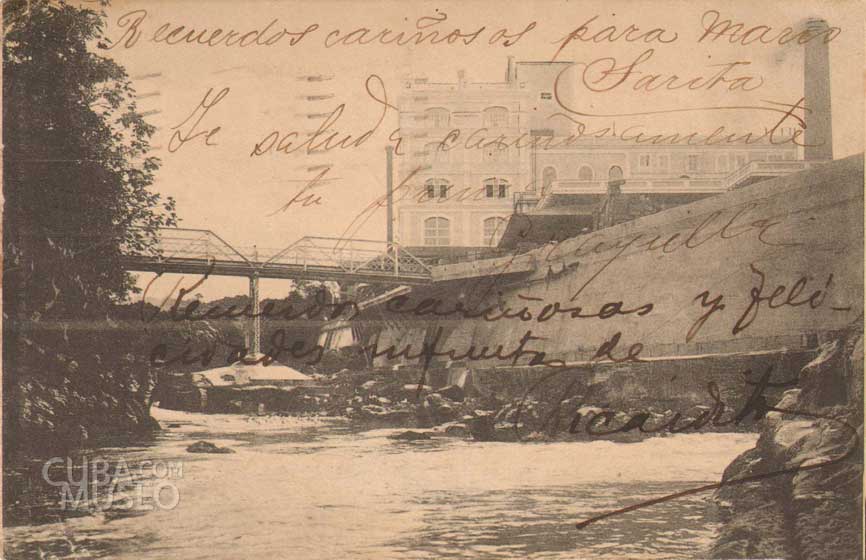 Recuerdos cariñosos para Mario
Sarita
Te saluda cariñosamente
tu
Recuerdos cariñosos y feli-
cidades infinitas de
Ricardito
CUBA.COM
MUSEO